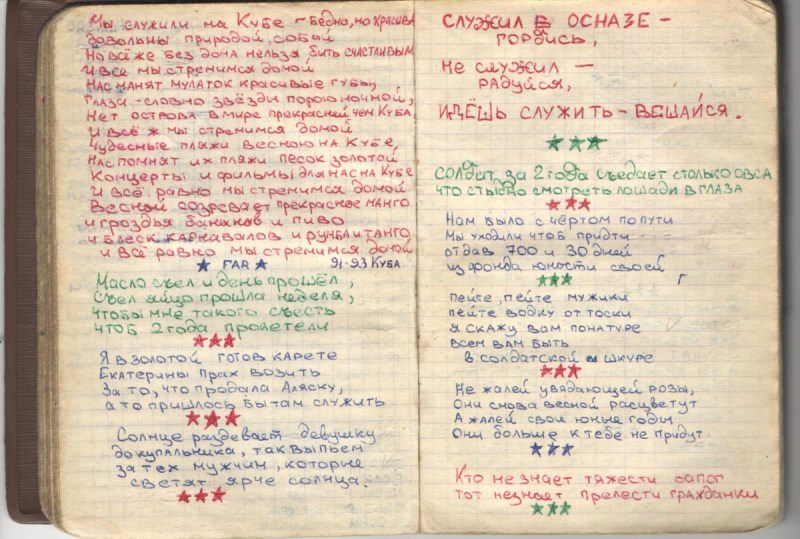 Мы служили на Кубе – бедно, но красиво
Довольны природой, собой
Но всё же без дома нельзя быть счастливым
И все мы стремимся домой
Нас манят мулаток красивые губы,
Глаза – словно звёзды порою ночной,
Нет острова в мире прекрасней чем Куба
И всё ж мы стремимся домой
Чудесные пляжи весною на Кубе
Нас помнят их пляжи песок золотой
Концерты и фильмы для нас на Кубе
И всё равно мы стремимся домой
Весной созревает прекрасное манго
И гроздья бананов и пиво
И блеск карнавалов и румба и танго
И всё равно мы стремимся домой
★ FAR ★ 91-93 Куба
Масло съел и день прошёл,
Съел яйцо прошла неделя,
Чтобы мне такого съесть
Чтоб 2 года пролетели
★★★
Я в золотой готов карете
Екатерины прах возить
За то, что продала Аляску,
а то пришлось бы там служить
★★★
Солнце раздевает девушку
до купальника, так выпьем
за тех мужчин, которые
светят ярче солнца.
★★★
Служил в ОСНАЗе –
гордись,
Не служил –
радуйся,
Идёшь служить – вешайся.
★★★
Солдат за 2 года съедает столько овса
что стыдно смотреть лошади в глаза
★★★
Нам было с чёртом по пути
Мы уходили чтоб придти
отдав 700 и 30 дней
из фонда юности своей
★★★
Пейте, пейте мужики
пейте водку от тоски
я скажу вам по натуре
всем вам быть
в солдатской шкуре
★★★
Не жалей увядающей розы,
Они снова весной расцветут
А жалей свои юные годы
Они больше к тебе не придут.
★★★
Кто не знает тяжести сапог
тот не знает прелести гражданки
★★★